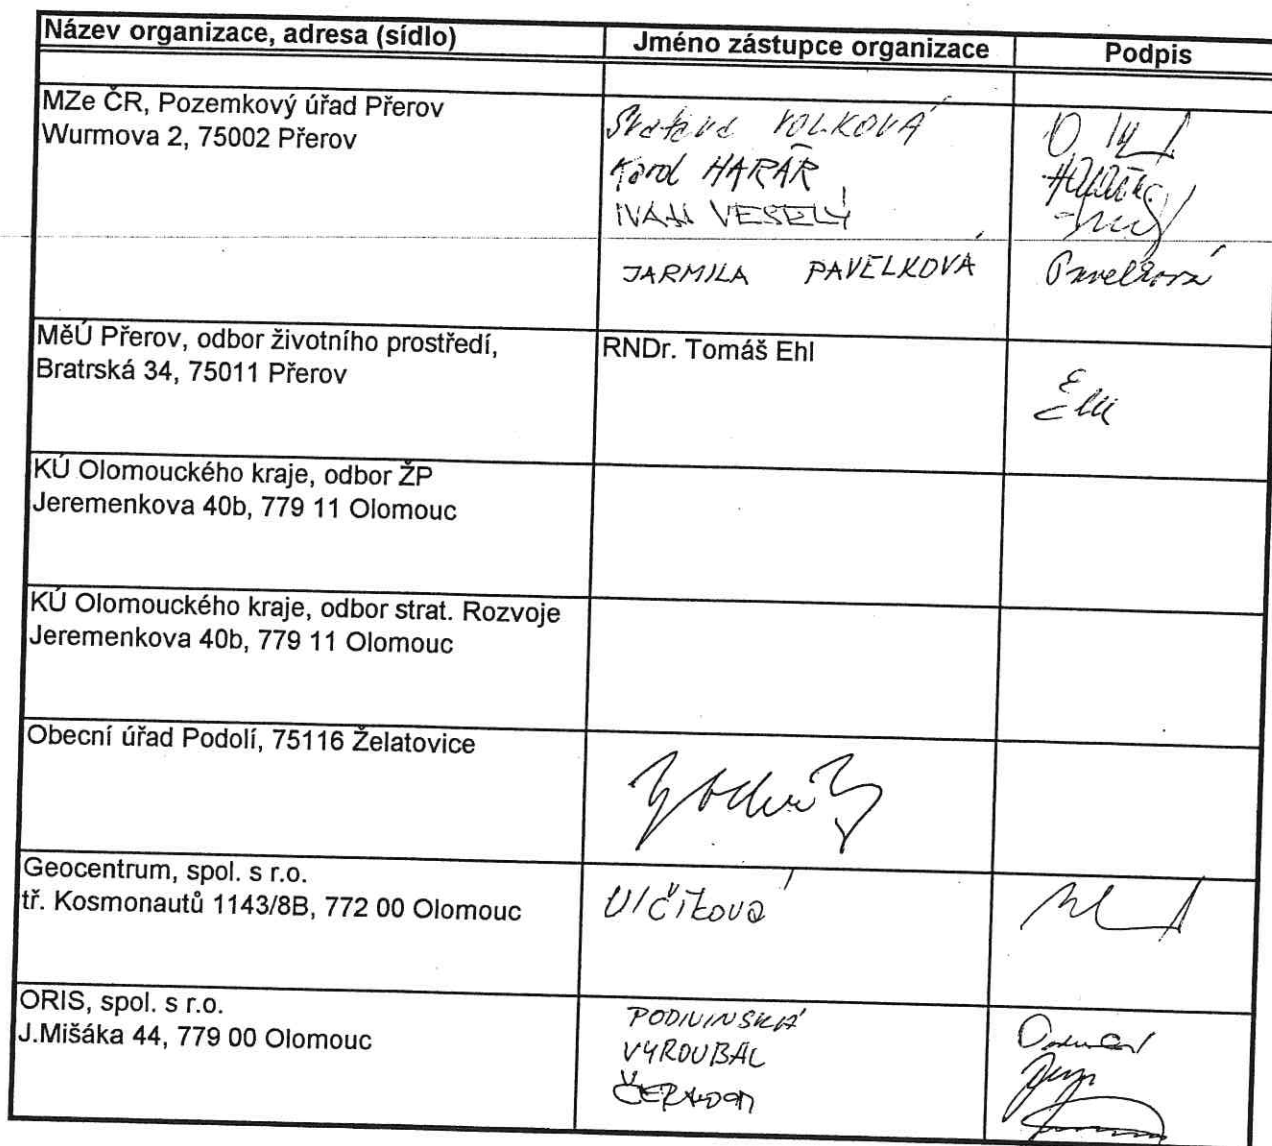 Název organizace, adresa (sídlo) Jméno zástupce organizace Podpis
MZe ČR, Pozemkový úřad Přerov
Wurmova 2, 75002 Přerov
VOLKOVÁ
Karol HARÁR
IVAN VESELÝ
JARMILA PAVELKOVÁ Pavelková
MěÚ Přerov, odbor životního prostředí, RNDr. Tomáš Ehl
Bratrská 34, 75011 Přerov
KÚ Olomouckého kraje, odbor ŽP
Jeremenkova 40b, 779 11 Olomouc
KÚ Olomouckého kraje, odbor strat. Rozvoje
Jeremenkova 40b, 779 11 Olomouc
Obecní úřad Podolí, 75116 Želatovice
Geocentrum, spol. s r.o.
tř. Kosmonautů 1143/8B, 772 00 Olomouc Vlčíková
ORIS, spol. s r.o. PODIVINSKÁ
J.Mišáka 44, 779 00 Olomouc VYROUBAL